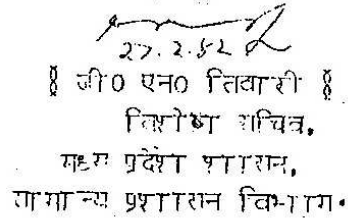 27.2.82
§ जी0 एन0 तिवारी §
विशेष सचिव,
मध्य प्रदेश शासन,
सामान्य प्रशासन विभाग.